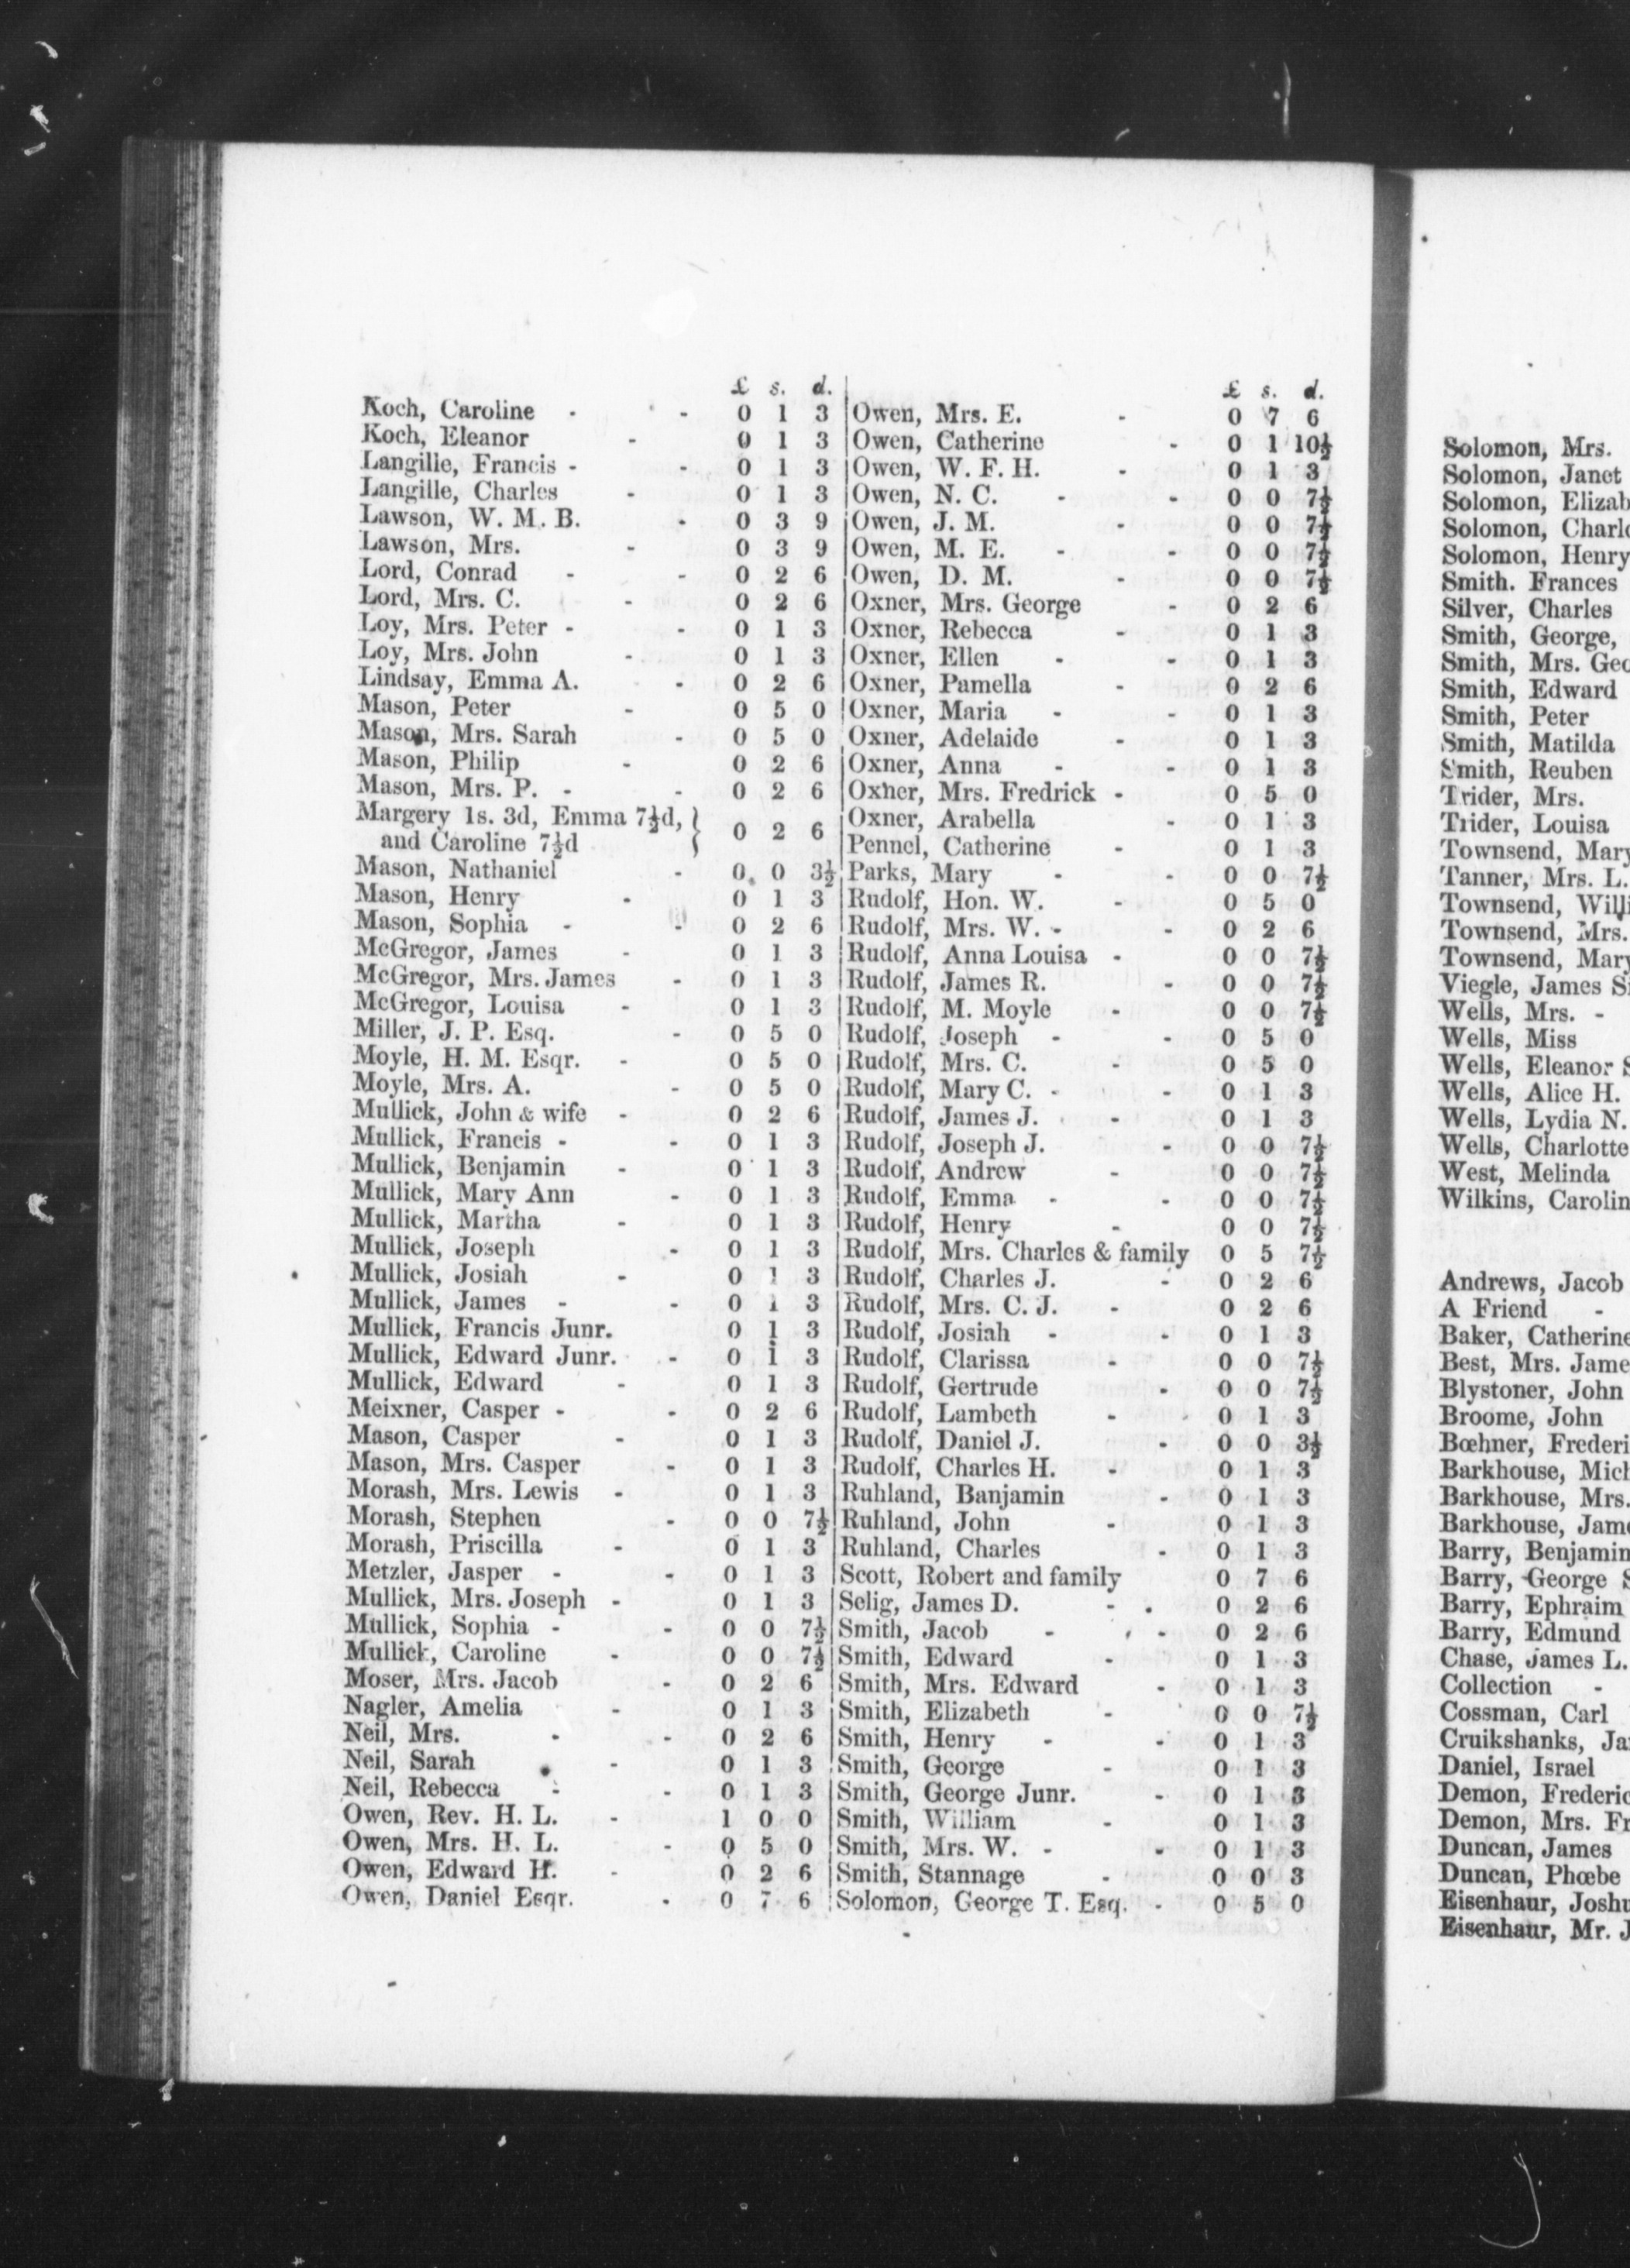 £ s. d.
Koch, Caroline - - 0 1 3
Koch, Eleanor - 0 1 3
Langille, Francis - - 0 1 3
Langille, Charles - 0 1 3
Lawson, W. M. B. - 0 3 9
Lawson, Mrs. - 0 3 9
Lord, Conrad - - 0 2 6
Lord, Mrs. C. - 0 2 6
Loy, Mrs. Peter - - 0 1 3
Loy, Mrs. John - 0 1 3
Lindsay, Emma A. - 0 2 6
Mason, Peter - 0 5 0
Mason, Mrs. Sarah - 0 5 0
Mason, Philip - 0 2 6
Mason, Mrs. P. - - 0 2 6
Margery 1s. 3d, Emma 7½d,
and Caroline 7½d } 0 2 6
Mason, Nathaniel - 0 0 3½
Mason, Henry - 0 1 3
Mason, Sophia - - 0 2 6
McGregor, James - 0 1 3
McGregor, Mrs. James - 0 1 3
McGregor, Louisa - 0 1 3
Miller, J. P. Esq. - 0 5 0
Moyle, H. M. Esqr. - 0 5 0
Moyle, Mrs. A. - 0 5 0
Mullick, John & wife - 0 2 6
Mullick, Francis - - 0 1 3
Mullick, Benjamin - 0 1 3
Mullick, Mary Ann - 0 1 3
Mullick, Martha - 0 1 3
Mullick, Joseph - 0 1 3
Mullick, Josiah - 0 1 3
Mullick, James - - 0 1 3
Mullick, Francis Junr. 0 1 3
Mullick, Edward Junr. - 0 1 3
Mullick, Edward - 0 1 3
Meixner, Casper - - 0 2 6
Mason, Casper - 0 1 3
Mason, Mrs. Casper - 0 1 3
Morash, Mrs. Lewis - 0 1 3
Morash, Stephen - 0 0 7½
Morash, Priscilla - 0 1 3
Metzler, Jasper - - 0 1 3
Mullick, Mrs. Joseph - 0 1 3
Mullick, Sophia - - 0 0 7½
Mullick, Caroline - 0 0 7½
Moser, Mrs. Jacob - 0 2 6
Nagler, Amelia - 0 1 3
Neil, Mrs. - - 0 2 6
Neil, Sarah - 0 1 3
Neil, Rebecca - - 0 1 3
Owen, Rev. H. L. - 1 0 0
Owen, Mrs. H. L. - 0 5 0
Owen, Edward H. - 0 2 6
Owen, Daniel Esqr. - 0 7 6
£ s. d.
Owen, Mrs. E. - 0 7 6
Owen, Catherine - 0 1 10½
Owen, W. F. H. - 0 1 3
Owen, N. C. - - 0 0 7½
Owen, J. M. - 0 0 7½
Owen, M. E. - - 0 0 7½
Owen, D. M. - 0 0 7½
Oxner, Mrs. George - 0 2 6
Oxner, Rebecca - 0 1 3
Oxner, Ellen - - 0 1 3
Oxner, Pamella - 0 2 6
Oxner, Maria - - 0 1 3
Oxner, Adelaide - 0 1 3
Oxner, Anna - - 0 1 3
Oxner, Mrs. Fredrick - 0 5 0
Oxner, Arabella - 0 1 3
Pennel, Catherine - 0 1 3
Parks, Mary - - 0 0 7½
Rudolf, Hon. W. - 0 5 0
Rudolf, Mrs. W. - - 0 2 6
Rudolf, Anna Louisa - 0 0 7½
Rudolf, James R. - 0 0 7½
Rudolf, M. Moyle - 0 0 7½
Rudolf, Joseph - - 0 5 0
Rudolf, Mrs. C. - 0 5 0
Rudolf, Mary C. - - 0 1 3
Rudolf, James J. - 0 1 3
Rudolf, Joseph J. - 0 0 7½
Rudolf, Andrew - 0 0 7½
Rudolf, Emma - - 0 0 7½
Rudolf, Henry - 0 0 7½
Rudolf, Mrs. Charles & family 0 5 7½
Rudolf, Charles J. - 0 2 6
Rudolf, Mrs. C. J. - 0 2 6
Rudolf, Josiah - - 0 1 3
Rudolf, Clarissa - 0 0 7½
Rudolf, Gertrude - 0 0 7½
Rudolf, Lambeth - 0 1 3
Rudolf, Daniel J. - 0 0 3½
Rudolf, Charles H. - 0 1 3
Ruhland, Banjamin - 0 1 3
Ruhland, John - 0 1 3
Ruhland, Charles - 0 1 3
Scott, Robert and family 0 7 6
Selig, James D. - 0 2 6
Smith, Jacob - - 0 2 6
Smith, Edward - 0 1 3
Smith, Mrs. Edward - 0 1 3
Smith, Elizabeth - 0 0 7½
Smith, Henry - - 0 1 3
Smith, George - 0 1 3
Smith, George Junr. - 0 1 3
Smith, William - 0 1 3
Smith, Mrs. W. - - 0 1 3
Smith, Stannage - 0 0 3
Solomon, George T. Esq. - 0 5 0
Solomon, Mrs.
Solomon, Janet
Solomon, Elizab
Solomon, Charlo
Solomon, Henry
Smith. Frances
Silver, Charles
Smith, George,
Smith, Mrs. Geo
Smith, Edward
Smith, Peter
Smith, Matilda
Smith, Reuben
Trider, Mrs.
Trider, Louisa
Townsend, Mary
Tanner, Mrs. L.
Townsend, Willi
Townsend, Mrs.
Townsend, Mary
Viegle, James Si
Wells, Mrs. -
Wells, Miss
Wells, Eleanor S
Wells, Alice H.
Wells, Lydia N.
Wells, Charlotte
West, Melinda
Wilkins, Carolin
Andrews, Jacob
A Friend -
Baker, Catherine
Best, Mrs. Jame
Blystoner, John
Broome, John
Bœhner, Frederi
Barkhouse, Mich
Barkhouse, Mrs.
Barkhouse, Jame
Barry, Benjamin
Barry, George S
Barry, Ephraim
Barry, Edmund
Chase, James L.
Collection -
Cossman, Carl
Cruikshanks, Ja
Daniel, Israel
Demon, Frederic
Demon, Mrs. Fr
Duncan, James
Duncan, Phœbe
Eisenhaur, Joshu
Eisenhaur, Mr. J